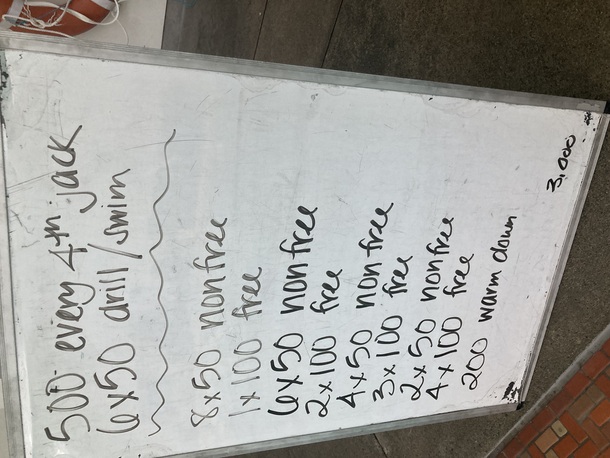 500 every 4th jack
6x50 drill/swim
8x50 nonfree
1x100 free
6x50 nonfree
2x100 free
4x50 nonfree
3x100 free
2x50 nonfree
4x100 free
200 warm down
3,000